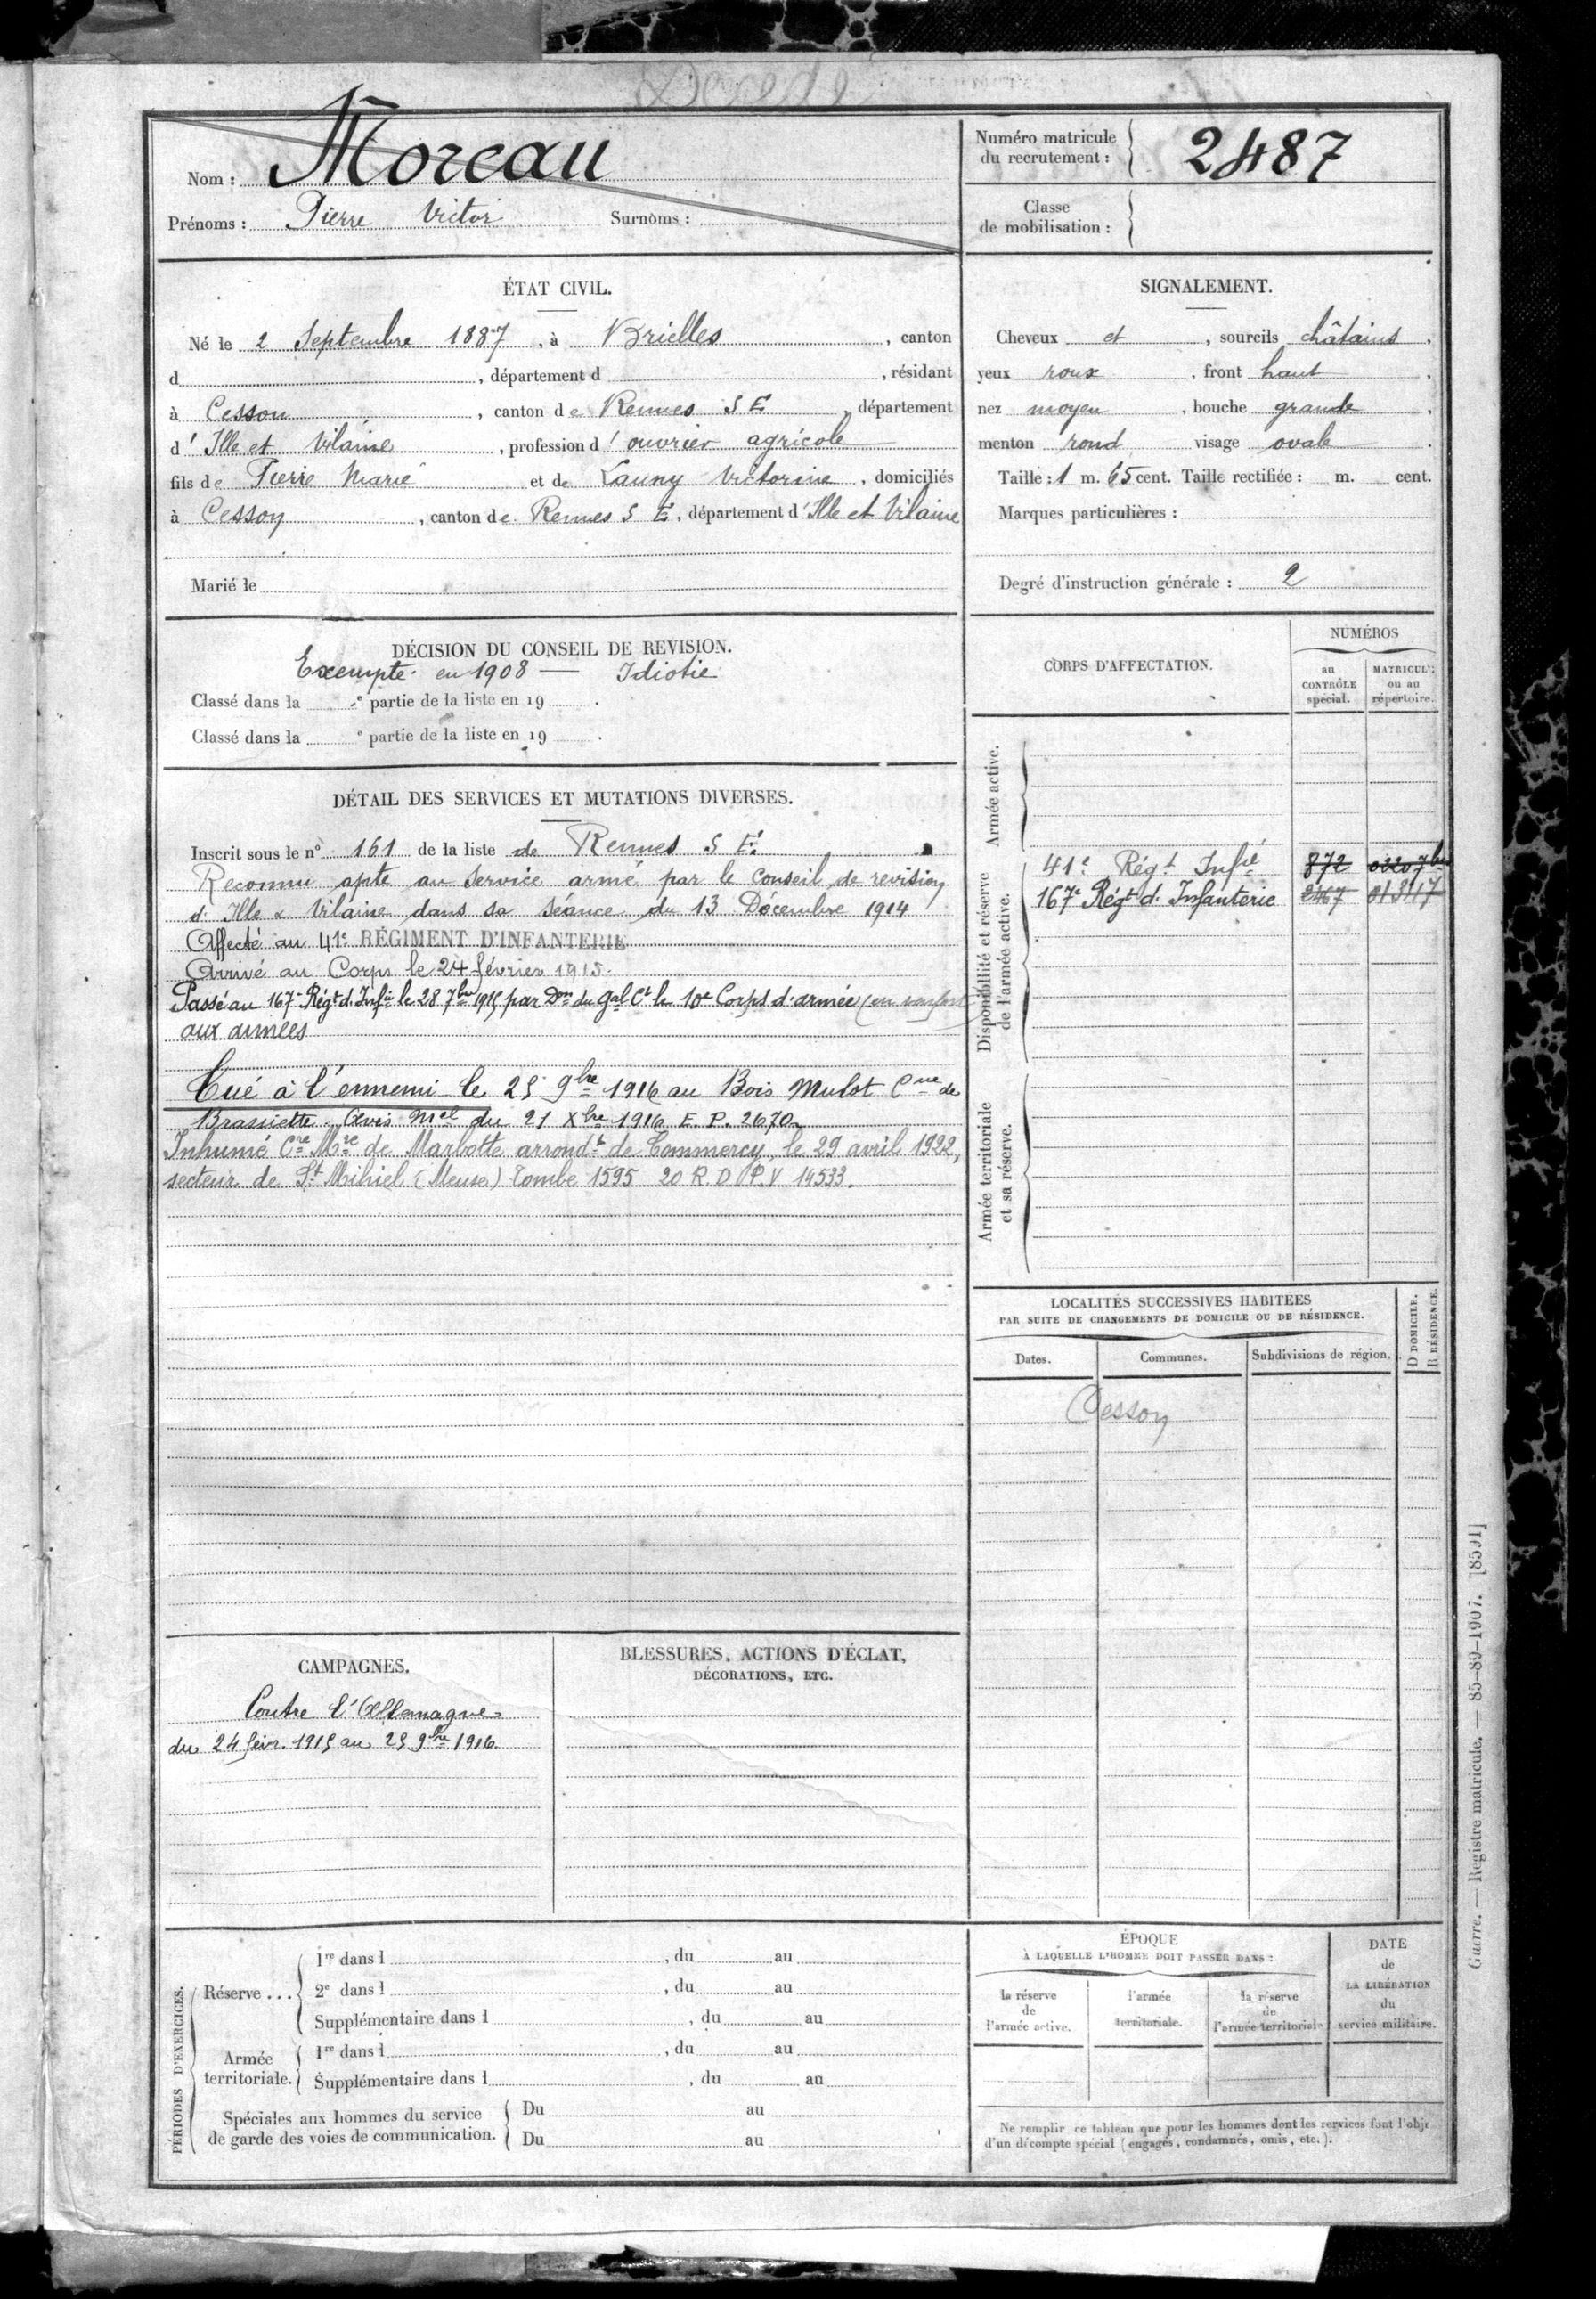 Decédé
Nom : Moreau
Prénoms : Pierre Victor Surnoms :
Numéro matricule du recrutement : 2487
Classe de mobilisation :
ÉTAT CIVIL.
Né le 2 Septembre 1887, à Brielles, canton
d, département d, résidant
à Cesson, canton de Rennes S E, département
d'Ille et Vilaine, profession d'ouvrier agricole
fils de Pierre Marie et de Launy Victorine, domiciliés
à Cesson, canton de Rennes S E, département d'Ille et Vilaine
Marié le
SIGNALEMENT.
Cheveux et, sourcils châtains,
yeux roux, front haut,
nez moyen, bouche grande,
menton rond visage ovale.
Taille : 1 m. 65 cent. Taille rectifiée : m. cent.
Marques particulières :
Degré d'instruction générale : 2
DÉCISION DU CONSEIL DE REVISION.
Exempté en 1908 — Idiotie
Classé dans la e partie de la liste en 19 .
Classé dans la e partie de la liste en 19 .
DÉTAIL DES SERVICES ET MUTATIONS DIVERSES.
Inscrit sous le n° 161 de la liste de Rennes S E.
Reconnu apte au Service armé par le Conseil de revision
d'Ille & Vilaine dans sa séance du 13 Décembre 1914
Affecté au 41e RÉGIMENT D'INFANTERIE
Arrivé au Corps le 24 février 1915.
Passé au 167e Régt d'Infie le 28 7bre 1915 par Don du Gal Ct le 10e Corps d'armée (en renfort
aux armées
Tué à l'ennemi le 25 9bre 1916 au Bois Mulot Cne de
Brassiette. Avis Mel du 21 Xbre 1916 E. P. 2670
Inhumé Cre Mre de Marbotte arrondt de Commercy, le 29 avril 1922,
secteur de St Mihiel (Meuse) Tombe 1595 20 R.D P.V 14533.
CORPS D'AFFECTATION.
NUMÉROS
au CONTRÔLE spécial.
MATRICULE ou au répertoire.
Armée active.
Disponibilité et réserve de l'armée active.
41e Régt Infie 872
167e Régt d'Infanterie 2467
Armée territoriale et sa réserve.
LOCALITÉS SUCCESSIVES HABITÉES
PAR SUITE DE CHANGEMENTS DE DOMICILE OU DE RÉSIDENCE.
Dates. Communes. Subdivisions de région. D DOMICILE. R RÉSIDENCE.
Cesson
CAMPAGNES.
Contre l'Allemagne
du 24 févr. 1915 au 25 9bre 1916.
BLESSURES, ACTIONS D'ÉCLAT,
DÉCORATIONS, ETC.
PÉRIODES D'EXERCICES.
Réserve ...
1re dans l , du au
2e dans l , du au
Supplémentaire dans l , du au
Armée territoriale.
1re dans l , du au
Supplémentaire dans l , du au
Spéciales aux hommes du service
de garde des voies de communication.
Du au
Du au
ÉPOQUE
À LAQUELLE L'HOMME DOIT PASSER DANS :
la réserve de l'armée active.
l'armée territoriale.
la réserve de l'armée territoriale
DATE de LA LIBÉRATION du service militaire.
Ne remplir ce tableau que pour les hommes dont les services font l'obje
d'un décompte spécial (engagés, condamnés, omis, etc.).
Guerre. — Registre matricule. — 85-89-1907. [8501]